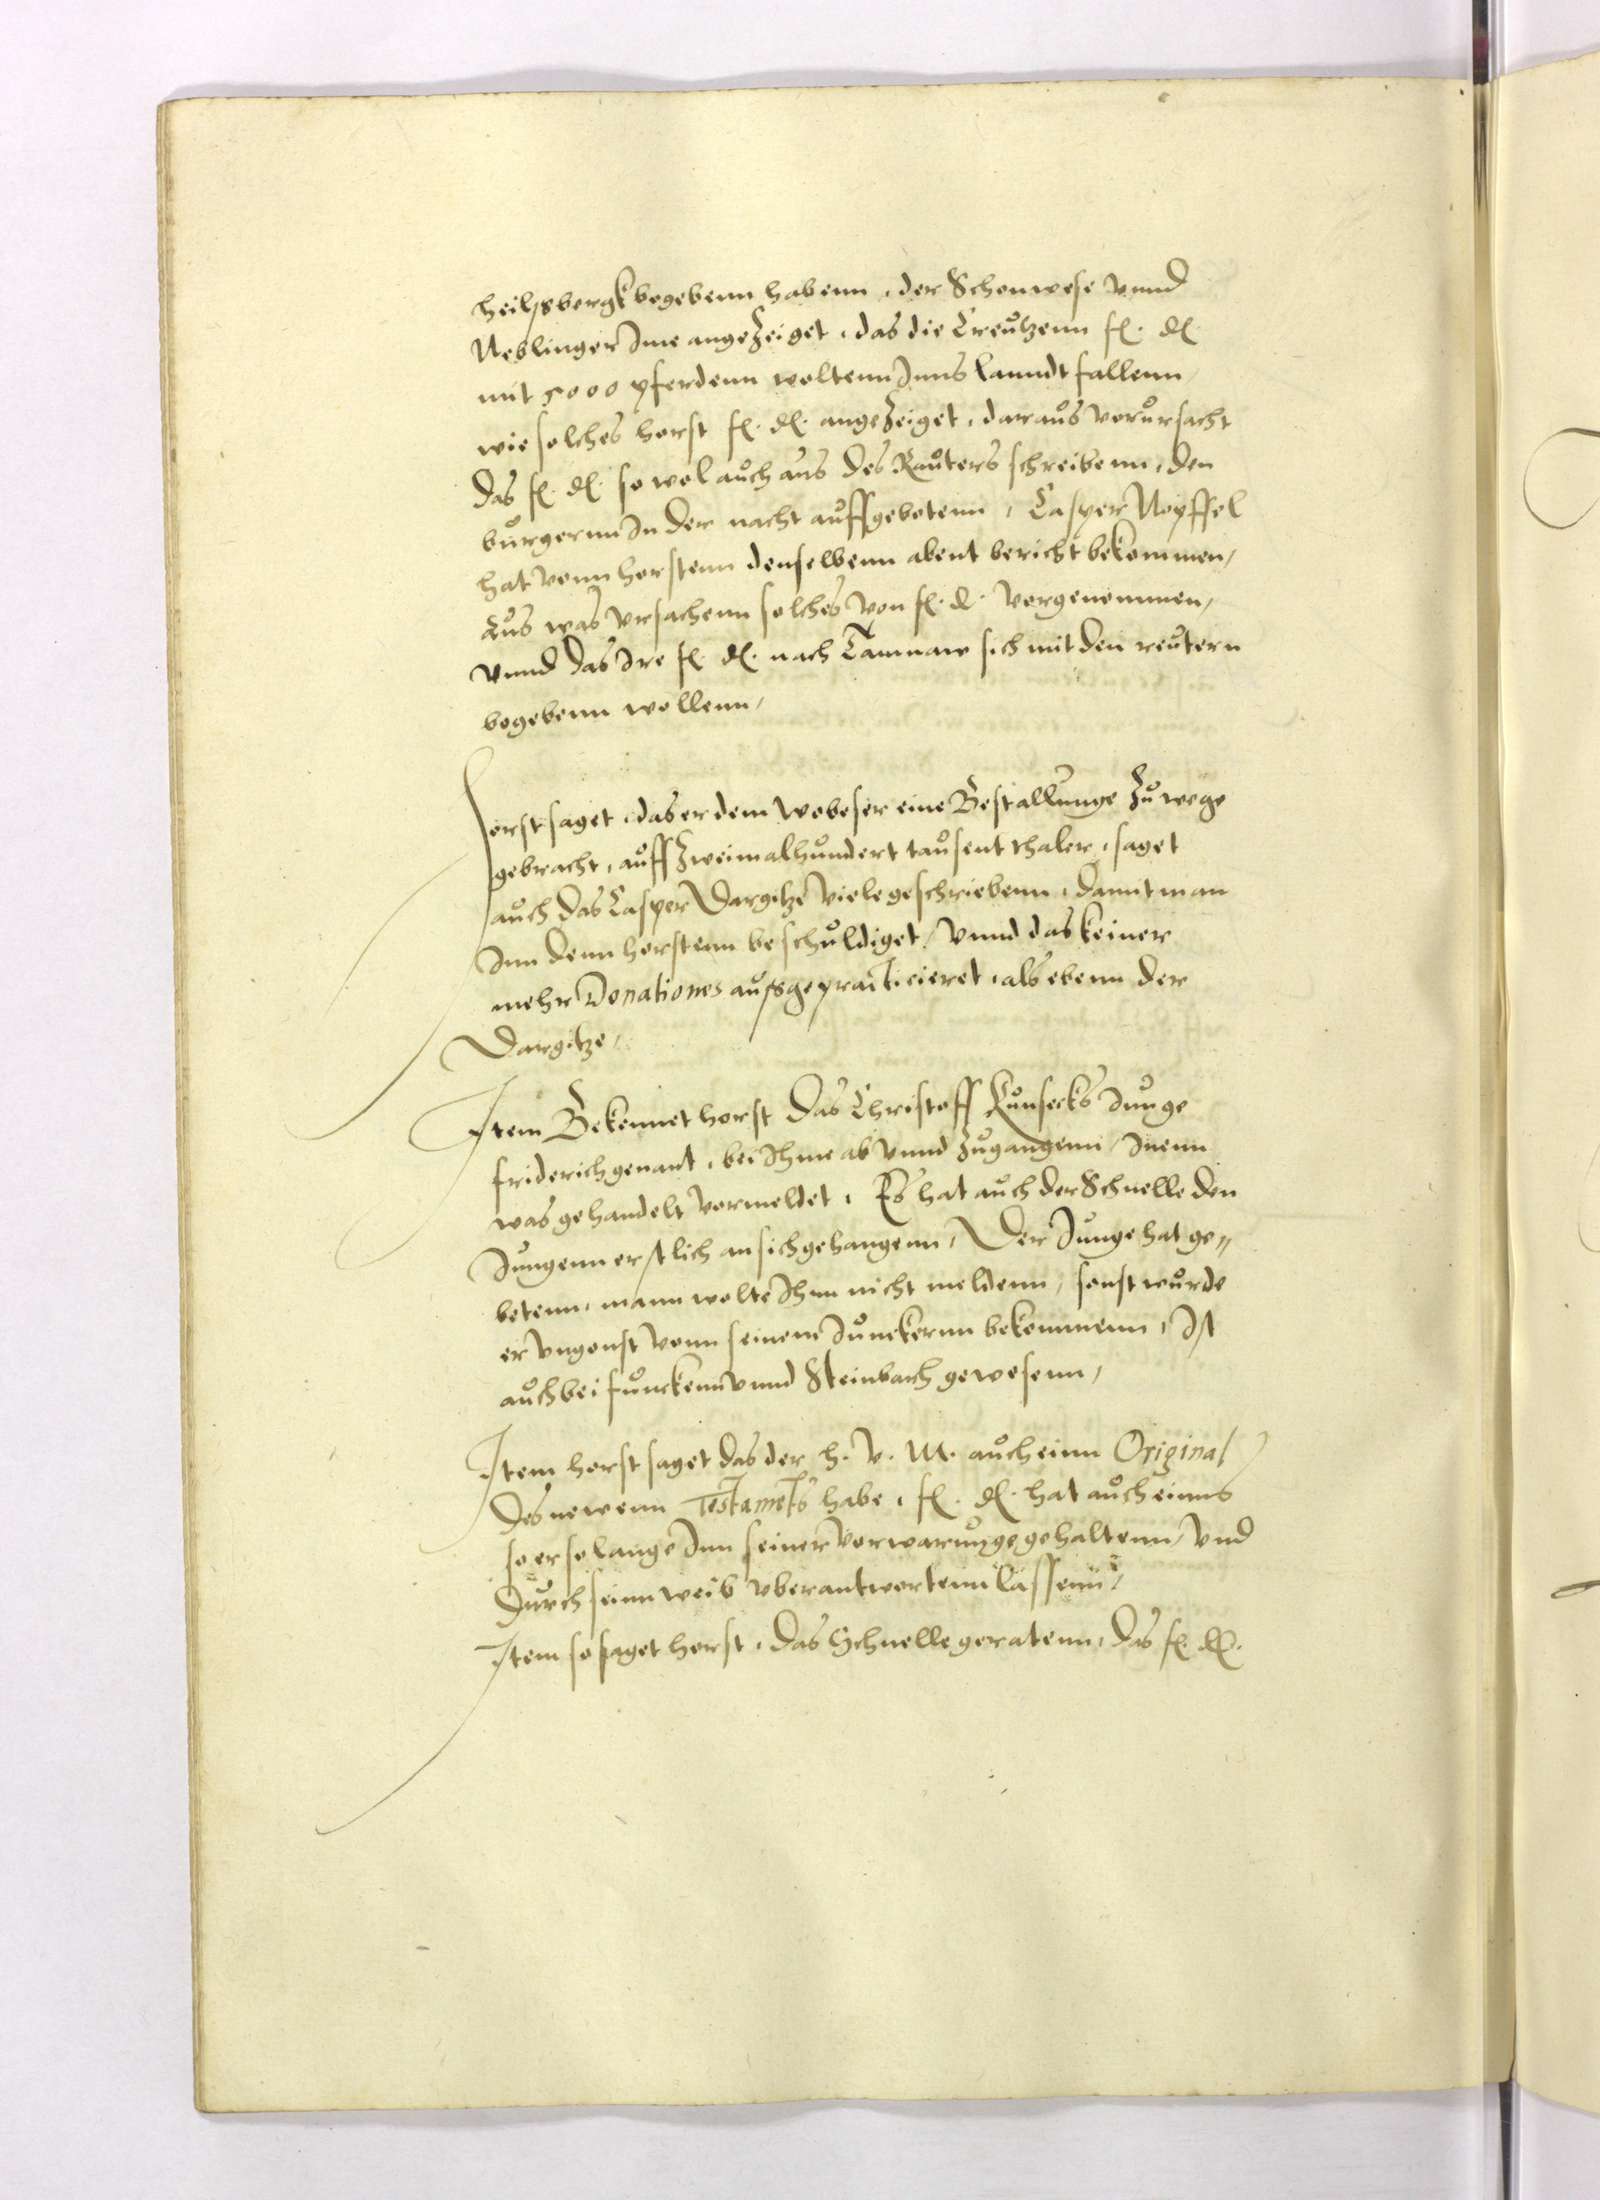 heilsbergk begebenn habenn, der Schonwese vnnd
Neblinger Ime angezeiget, das die Creutzenn f. d.
mit 5000 pferdenn woltenn Inns lanndt fallenn,
wie solches horst f. d. angezeiget, daraus verursacht
das f. d. so wol auch aus des Rauters schreibenn, den
burgernn In der nacht auffgebotenn, Casper Nepffel
hat vonn horstenn denselbenn abent bericht bekommen,
Aus was vrsachenn solches von f. d. vorgenommen,
vnnd das Ire f. d. nach Tamnaw sich mit den reutern
begebenn wollenn,
Horst saget, das er dem Wobeser eine Bestallunge zu wege
gebracht, auff zweimalhundert tausent thaler, saget
auch das Casper Dargitze viele geschriebenn, damit man
Inn denn horstenn beschuldiget, vnnd das keiner
mehr Donationes aufsgepracticieret, als ebenn der
Dargitze,
Item Bekennet horst das Christoff Kunsecks Junge
friderich genant, bei Ihme ab vnnd zugangenn, Inenn
was gehandelt vormeldet, Es hat auch der Schnelle den
Jungenn erstlich an sich gehangenn, Der Junge hat ge„
betenn, mann wolte Ihnn nicht meldenn, sonst wurde
er vngonst vonn seinem Junckernn bekommenn, Ist
auch bei funckenn vnnd Steinbach gewesenn,
Item horst saget das der h. v. M. auch einn Original
des newenn Testaments habe, f. d. hat auch einns
so er so lange Inn seiner vorwarunge gehaltenn, vnd
durch seinn weib vberantwortenn lassenn,
Item so saget horst, das Schnelle geratenn, das f. d.